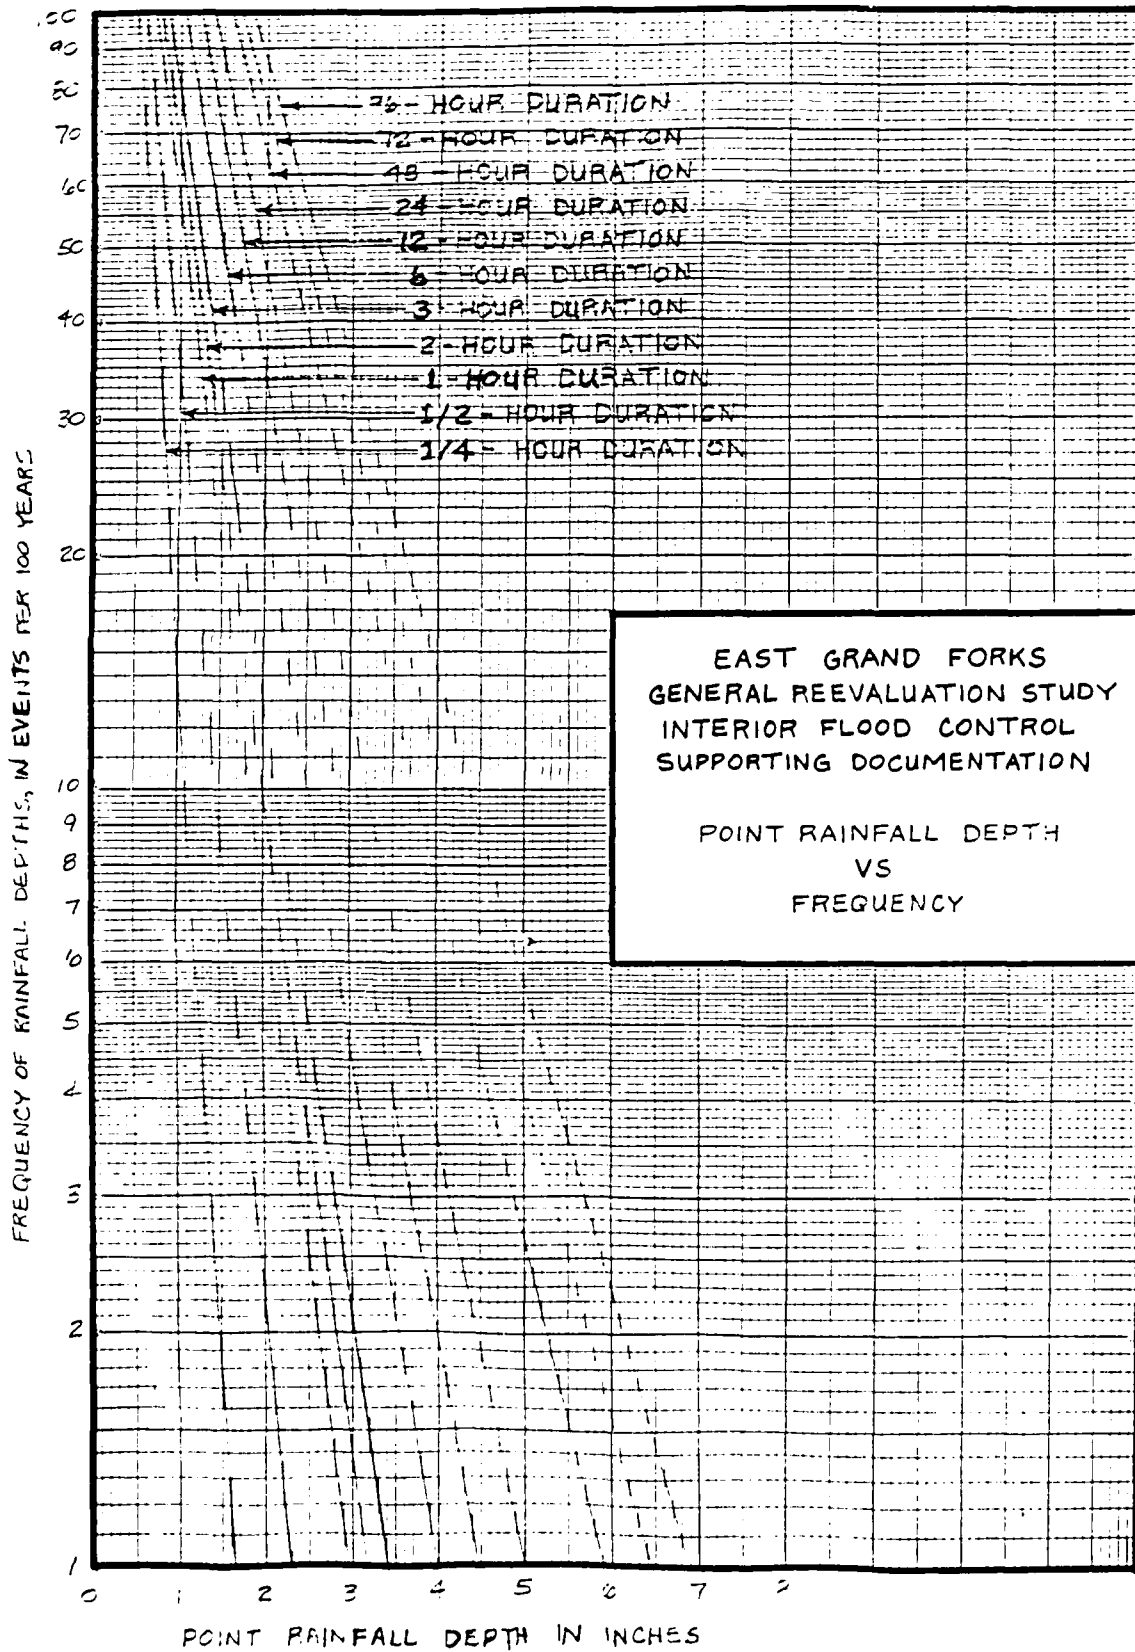 100
90
80
70
60
50
40
30
20
10
9
8
7
6
5
4
3
2
1
FREQUENCY OF RAINFALL DEPTHS, IN EVENTS PER 100 YEARS
96-HOUR DURATION
72-HOUR DURATION
48-HOUR DURATION
24-HOUR DURATION
12-HOUR DURATION
6-HOUR DURATION
3-HOUR DURATION
2-HOUR DURATION
1-HOUR DURATION
1/2-HOUR DURATION
1/4-HOUR DURATION
EAST GRAND FORKS
GENERAL REEVALUATION STUDY
INTERIOR FLOOD CONTROL
SUPPORTING DOCUMENTATION
POINT RAINFALL DEPTH
VS
FREQUENCY
0 1 2 3 4 5 6 7
POINT RAINFALL DEPTH IN INCHES